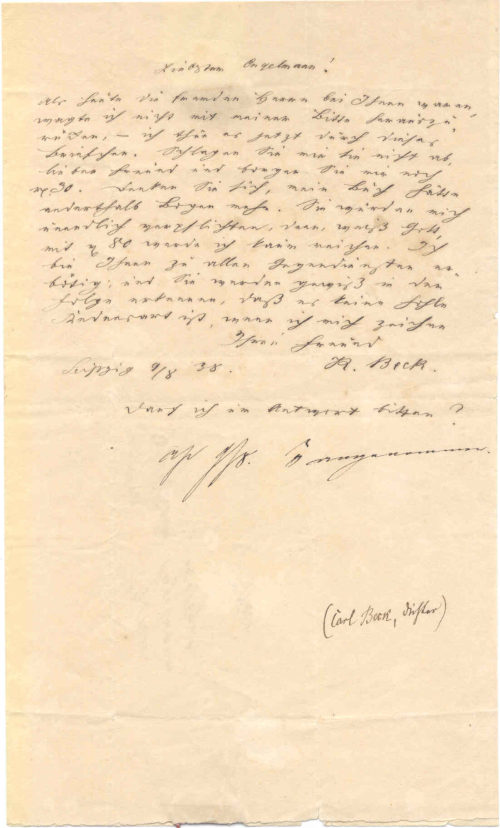 Liebster Engelmann!
Als heute die fremden Herrn bei Ihnen waren,
wagte ich nicht mit meiner Bitte herauszu
rücken, – ich thue es jetzt durch dieses
Briefchen. Schlagen Sie mir sie nicht ab,
lieber Freund und borgen Sie mir noch
30. Denken Sie sich, mein Buch hätte
anderthalb Bogen mehr. Sie würden mich
unendlich verpflichten, denn, weiß Gott,
mit 80 werde ich kaum reichen. Ich
bin Ihnen zu allen Gegendiensten er-
bötig, und Sie werden gewiß in der
Folge erkennen, daß es keine hohle
Redensart ist, wenn ich mich zeichne
Ihren Freund
Leipzig 9/8 38. K. Beck.
Darf ich um Antwort bitten?
9/8.
(Carl Beck, Dichter)